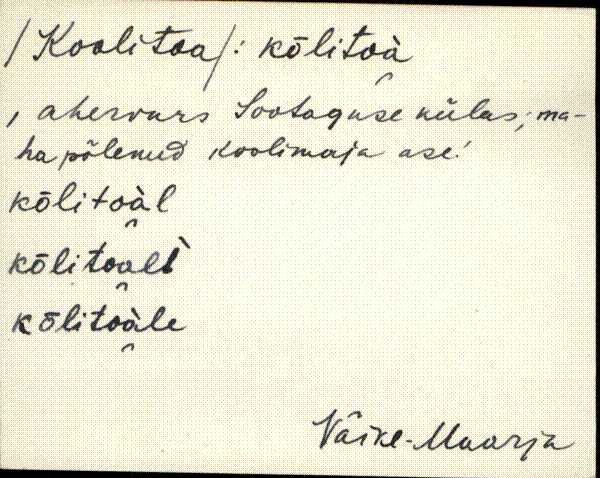 /Koolitoa/: kōlitoà
, ahervars Sootaguse külas; ma-
ha põlenud koolimaja ase.'
kōlitoàl
kōlitoalt̀
kōlitoàle
Väike-Maarja